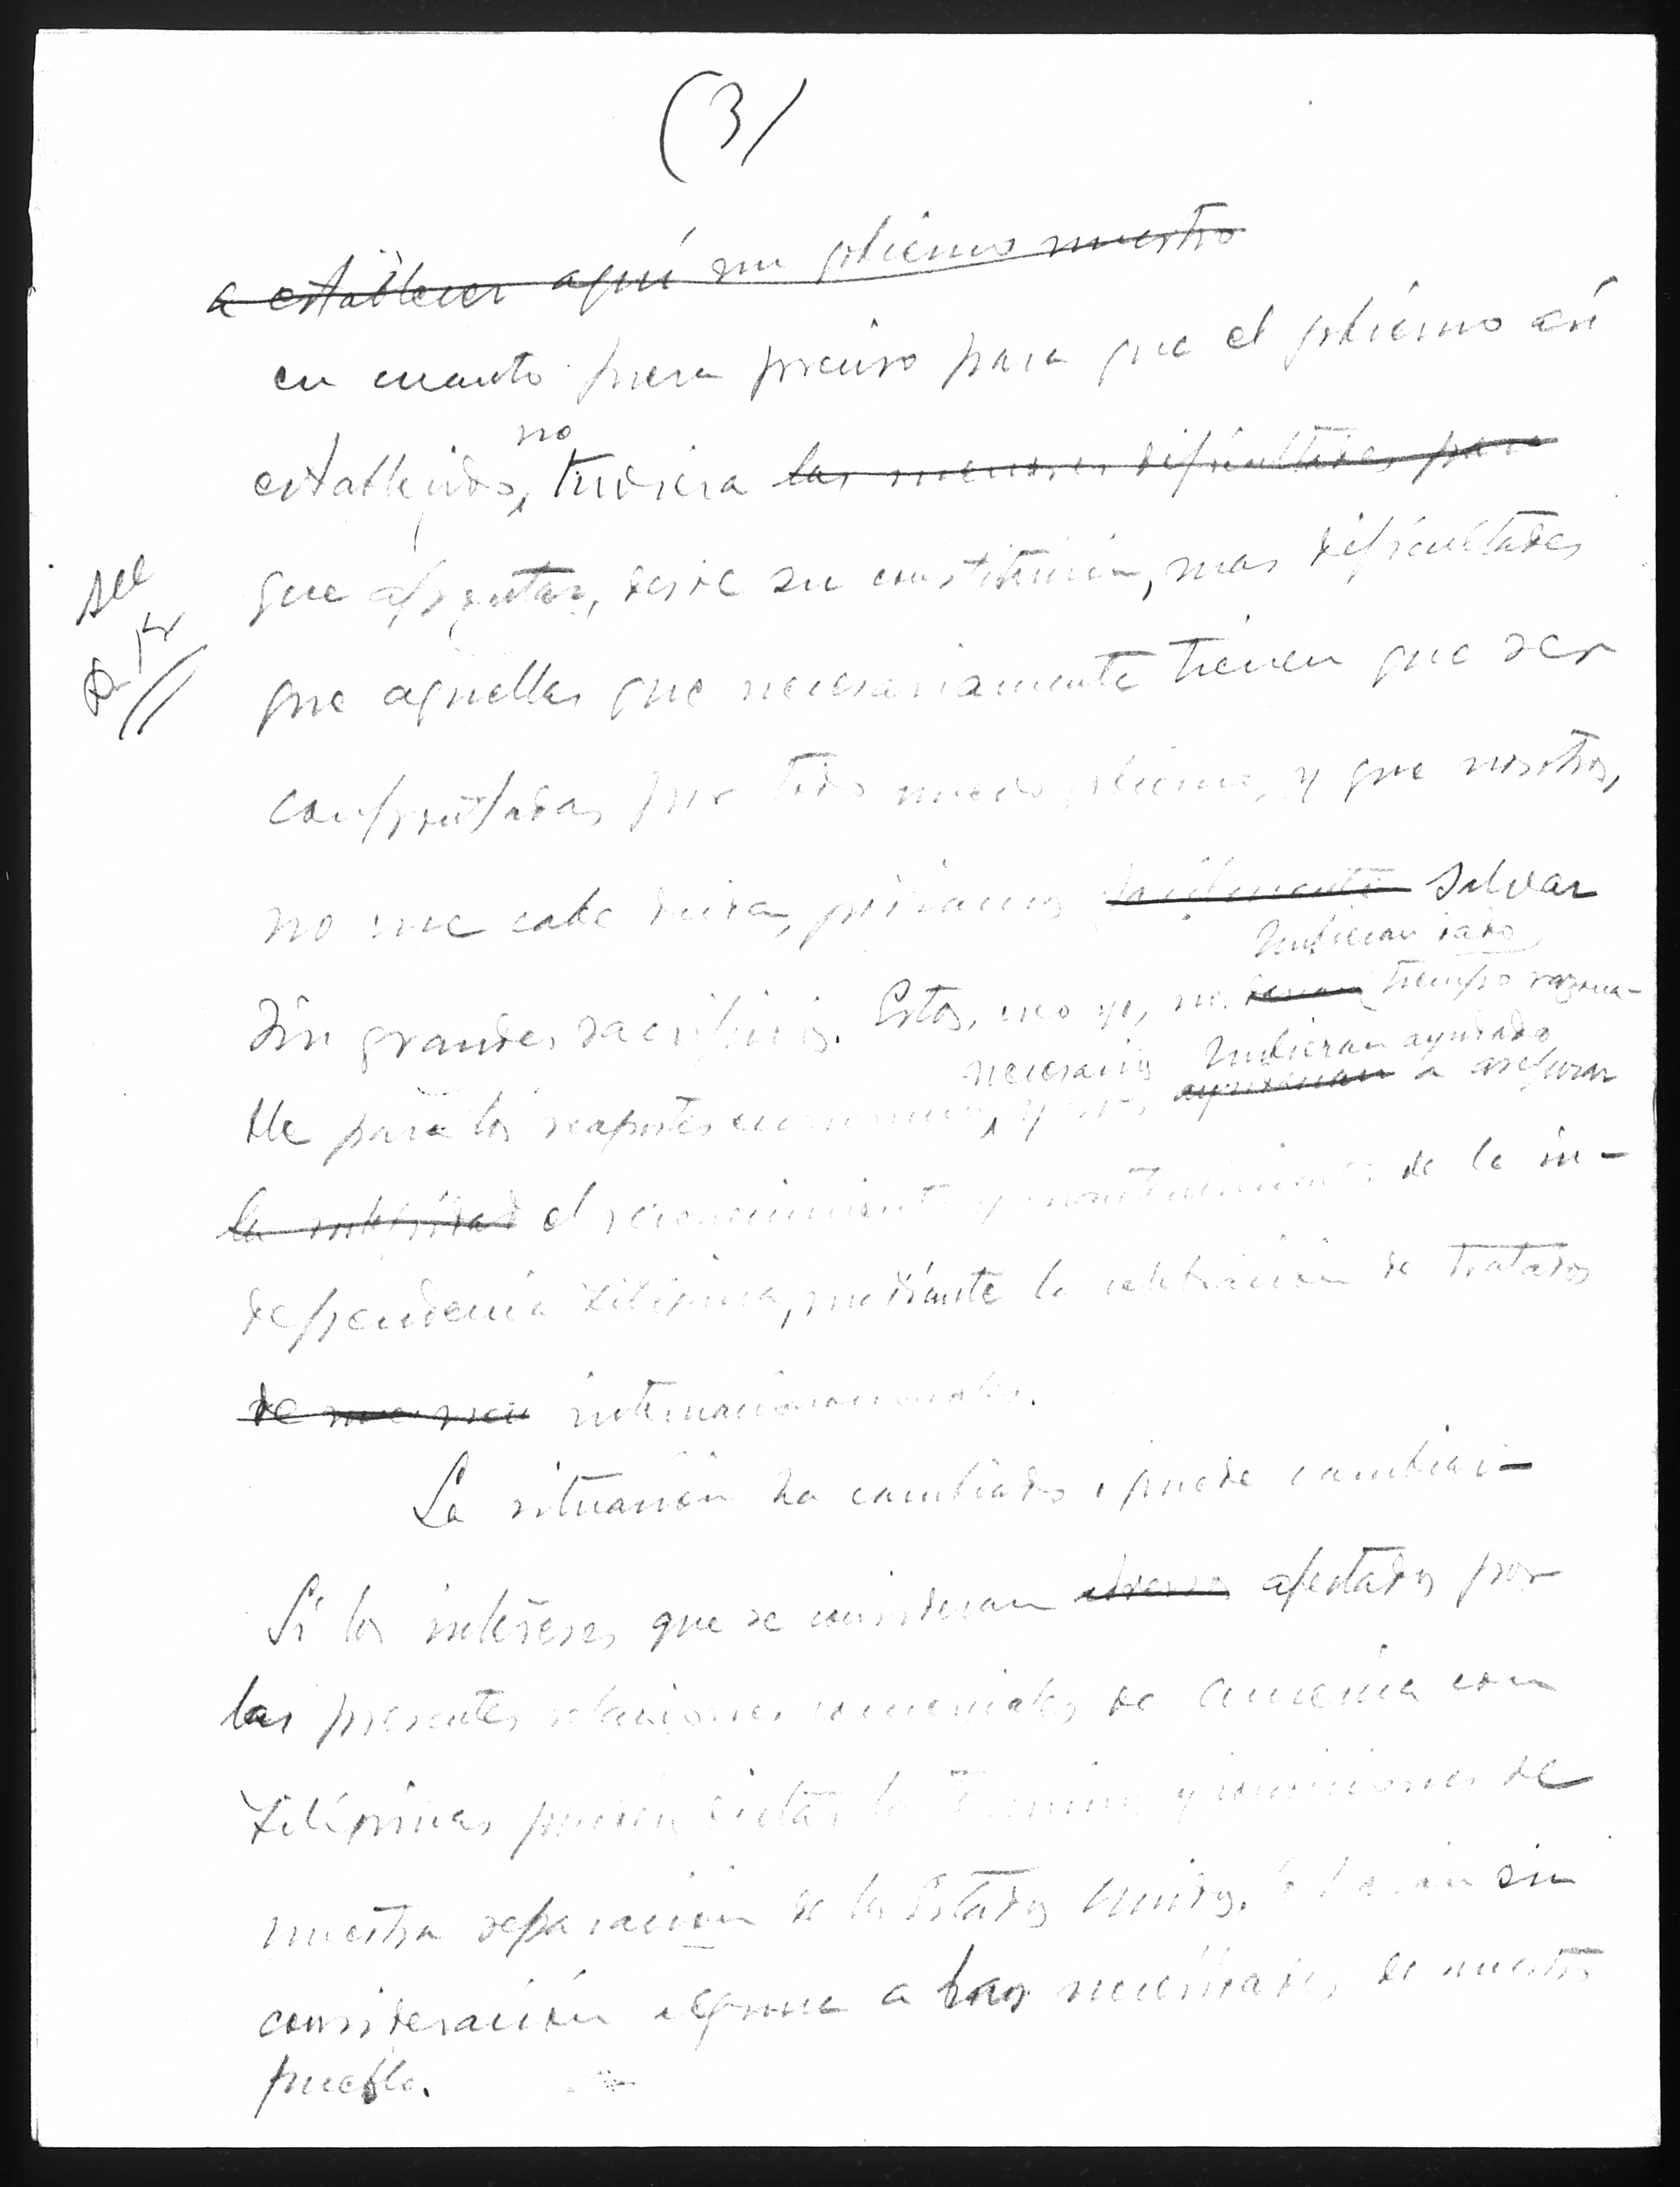 (3)
a establecer aquí un gobierno nuestro
en cuanto fuera preciso para que el gobierno así
no
establecido, tuviera las menores dificultades para
que afrontar, desde su constitución, mas dificultades
que aquellas que necesariamente tienen que ser
confrontadas por todo nuevo gobierno, y que nosotros,
no me cabe duda, podriamos facilmente salvar
hubieran dado
sin grandes sacrificios. Estos, creo yo, nos tiempo razona-
necesarios hubieran ayudado
ble para los reajustes economicos, y nos ayudarian a asegurar
la integridad el reconocimiento y mantenimiento de la in-
dependencia Filipina, mediante la celebración de tratados
de internacionacionales.
La situación ha cambiado o puede cambiar-
Si los intereses que se consideran afectados por
las presentes relaciones comerciales de America con
Filipinas pueden dictar los terminos y condiciones de
nuestra separación de los Estados Unidos, lo harán sin
consideración alguna a las necesidades de nuestro
pueblo.